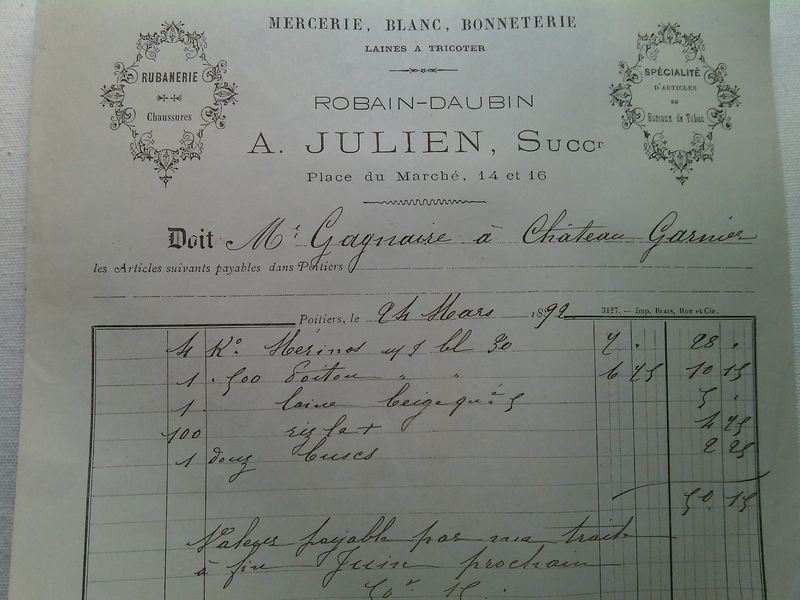 MERCERIE, BLANC, BONNETERIE
LAINES A TRICOTER
RUBANERIE
Chaussures
SPÉCIALITÉ
D'ARTICLES
DE
Bureaux de Tabac
ROBAIN-DAUBIN
A. JULIEN, Succr
Place du Marché, 14 et 16
Doit Mr. Gagnaire à Château Garnier
les Articles suivants payables dans Poitiers
Poitiers, le 24 Mars 1892
3127. — Imp. BLAIS, ROY et Cie.
4 Ko Mérinos bl 30 7 . 28 .
1 . 500 Poitou " " 6 75 10 15
1 . laine beige qté 5 5 .
100 4 75
1 douz buscs 2 25
50 15
Valeur payable par ma traite
à fin Juin prochain
50f 15